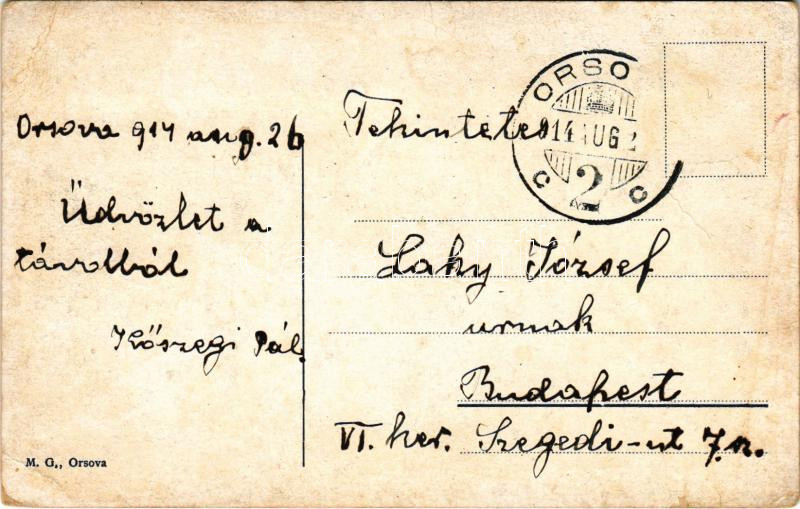 Orsova 914 aug. 26
Üdvözlet a
távolból
Kőszegi Pál.
M. G., Orsova
ORSO
914 AUG 2
C 2 C
Tekintetes
Laky József
urnak
Budapest
VI. ker. Szegedi-ut 7. sz.